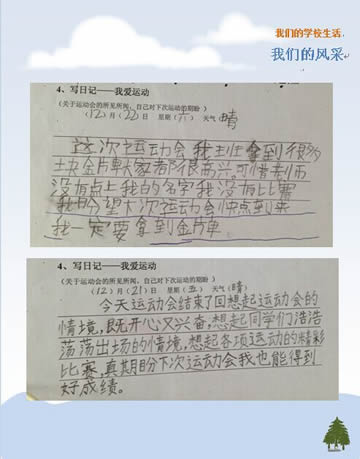 我们的学校生活
我们的风采
4、写日记——我爱运动
(关于运动会的所见所闻，自己对下次运动的期盼)
(12)月(22)日 星期(六) 天气 晴
这次运动会我班拿到很多
块金片单大家都很高兴。可惜老师
没有点上我的名字我没有比赛
我盼望下次运动会快点到来
我一定要拿到金片单
4、写日记——我爱运动
(关于运动会的所见所闻，自己对下次运动的期盼)
(12)月(21)日 星期(五) 天气(晴)
今天运动会结束了回想起运动会的
情境，既开心又兴奋，想起同学们浩浩
荡荡出场的情境，想起各项运动的精彩
比赛，真期盼下次运动会我也能得到
好成绩。